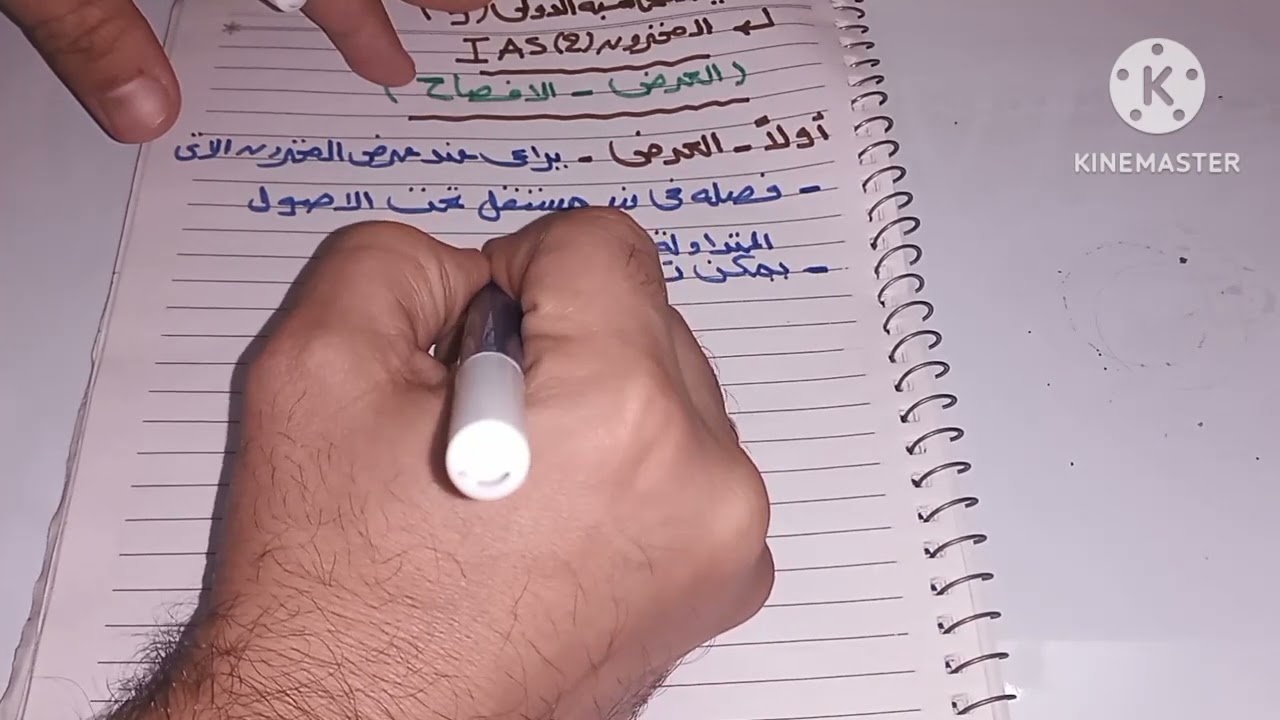 الدولى
المخزون IAS (2)
(العرض - الافصاح)
أولاً - العرض - يراعى عند عرض المخزون الاتى
- فصله فى مستقل تحت الاصول
المتداولة
- يمكن
K
KINEMASTER